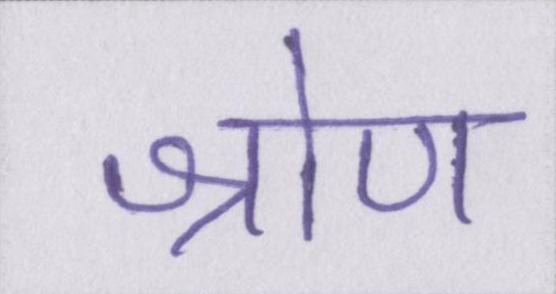 श्रोण